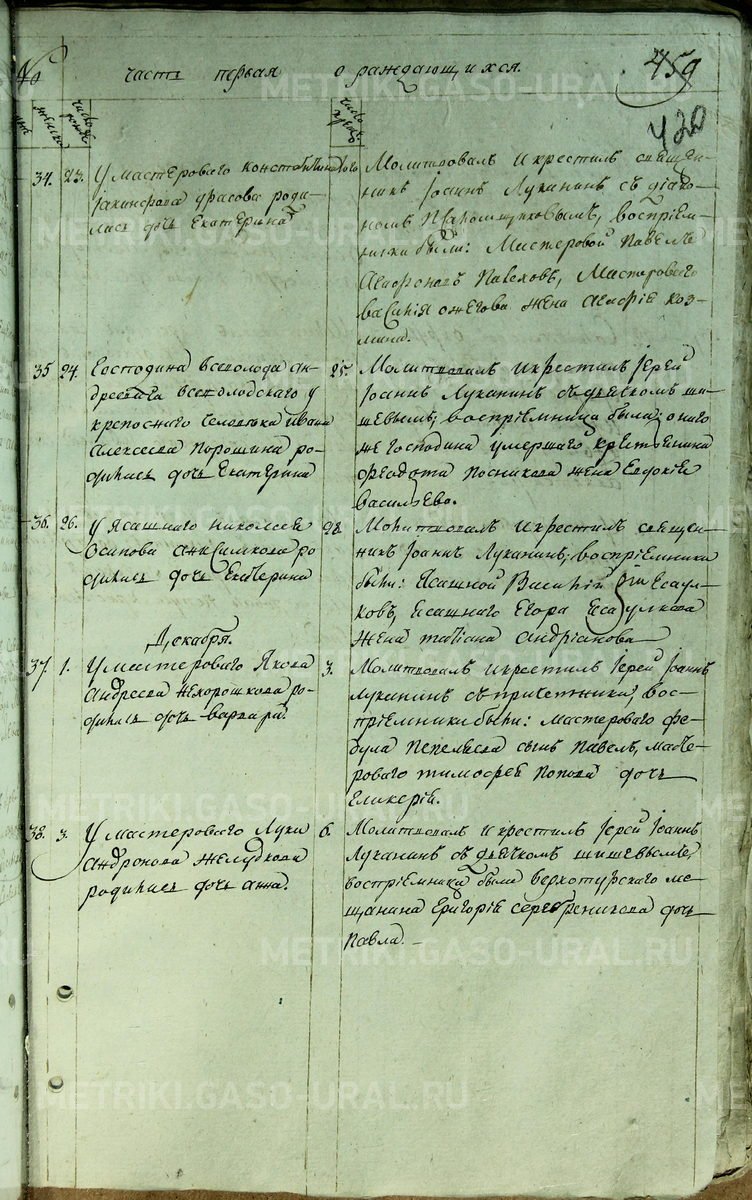 № часть первая о раждающихся. 459
420
женска
число рожд.
число крещ.
34. 23. У мастероваго
фрасова роди-
лась дочь Екатерина
Молитвовалъ и крестилъ священ-
никъ Іоаннъ Луканинъ съ діако-
номъ воспріем-
ники были: Мастеровой Павелъ
Агафоновъ Мастероваго
Василія Ожегова жена Агафіе Коз-
мина.
35 24. Господина Всеволода Ан-
дреевича Всеволодскаго у
крепоснаго человека Ивана
Алексеева Порошина ро-
дилась дочь Екатерина
25. Молитвовалъ и крестилъ Іерей
Іоаннъ Луканинъ съ дьячкомъ Ши-
шевымъ, воспріемница была: онаго
же господина умершаго крестьянина
Феодота Посникова жена Евдокіе
Васильева.
36. 26. У ясашнаго Николаея
Осипова ро-
дилась дочь Екатерина
28 Молитвовалъ и крестилъ священ-
никъ Іоаннъ Луканинъ, воспріемники
были: Ясашной Василій Есаул-
ковъ, ясашнаго Егора Есаулкова
жена Татіана Андріанова
Декабря.
37. 1. У мастероваго Якова
Андреева Нехорошкова ро-
дилась дочь Варвара.
3. Молитвовалъ и крестилъ Іерей Іоаннъ
Луканинъ съ причетники, вос-
пріемники были: мастероваго Фе-
дула Пепеляева сынъ Павелъ, масте-
роваго Тимофея Попова дочь
Гликерія.
38. 3. У мастероваго Луки
Андронова Желудкова
родилась дочь Анна.
6. Молитвовалъ и крестилъ Іерей Іоаннъ
Луканинъ съ дьячкомъ Шишевымъ,
воспріемница была верхотурскаго ме-
щанина Григоріе Серебреникова дочь
Павла.
METRIKI.GASO-URAL.RU